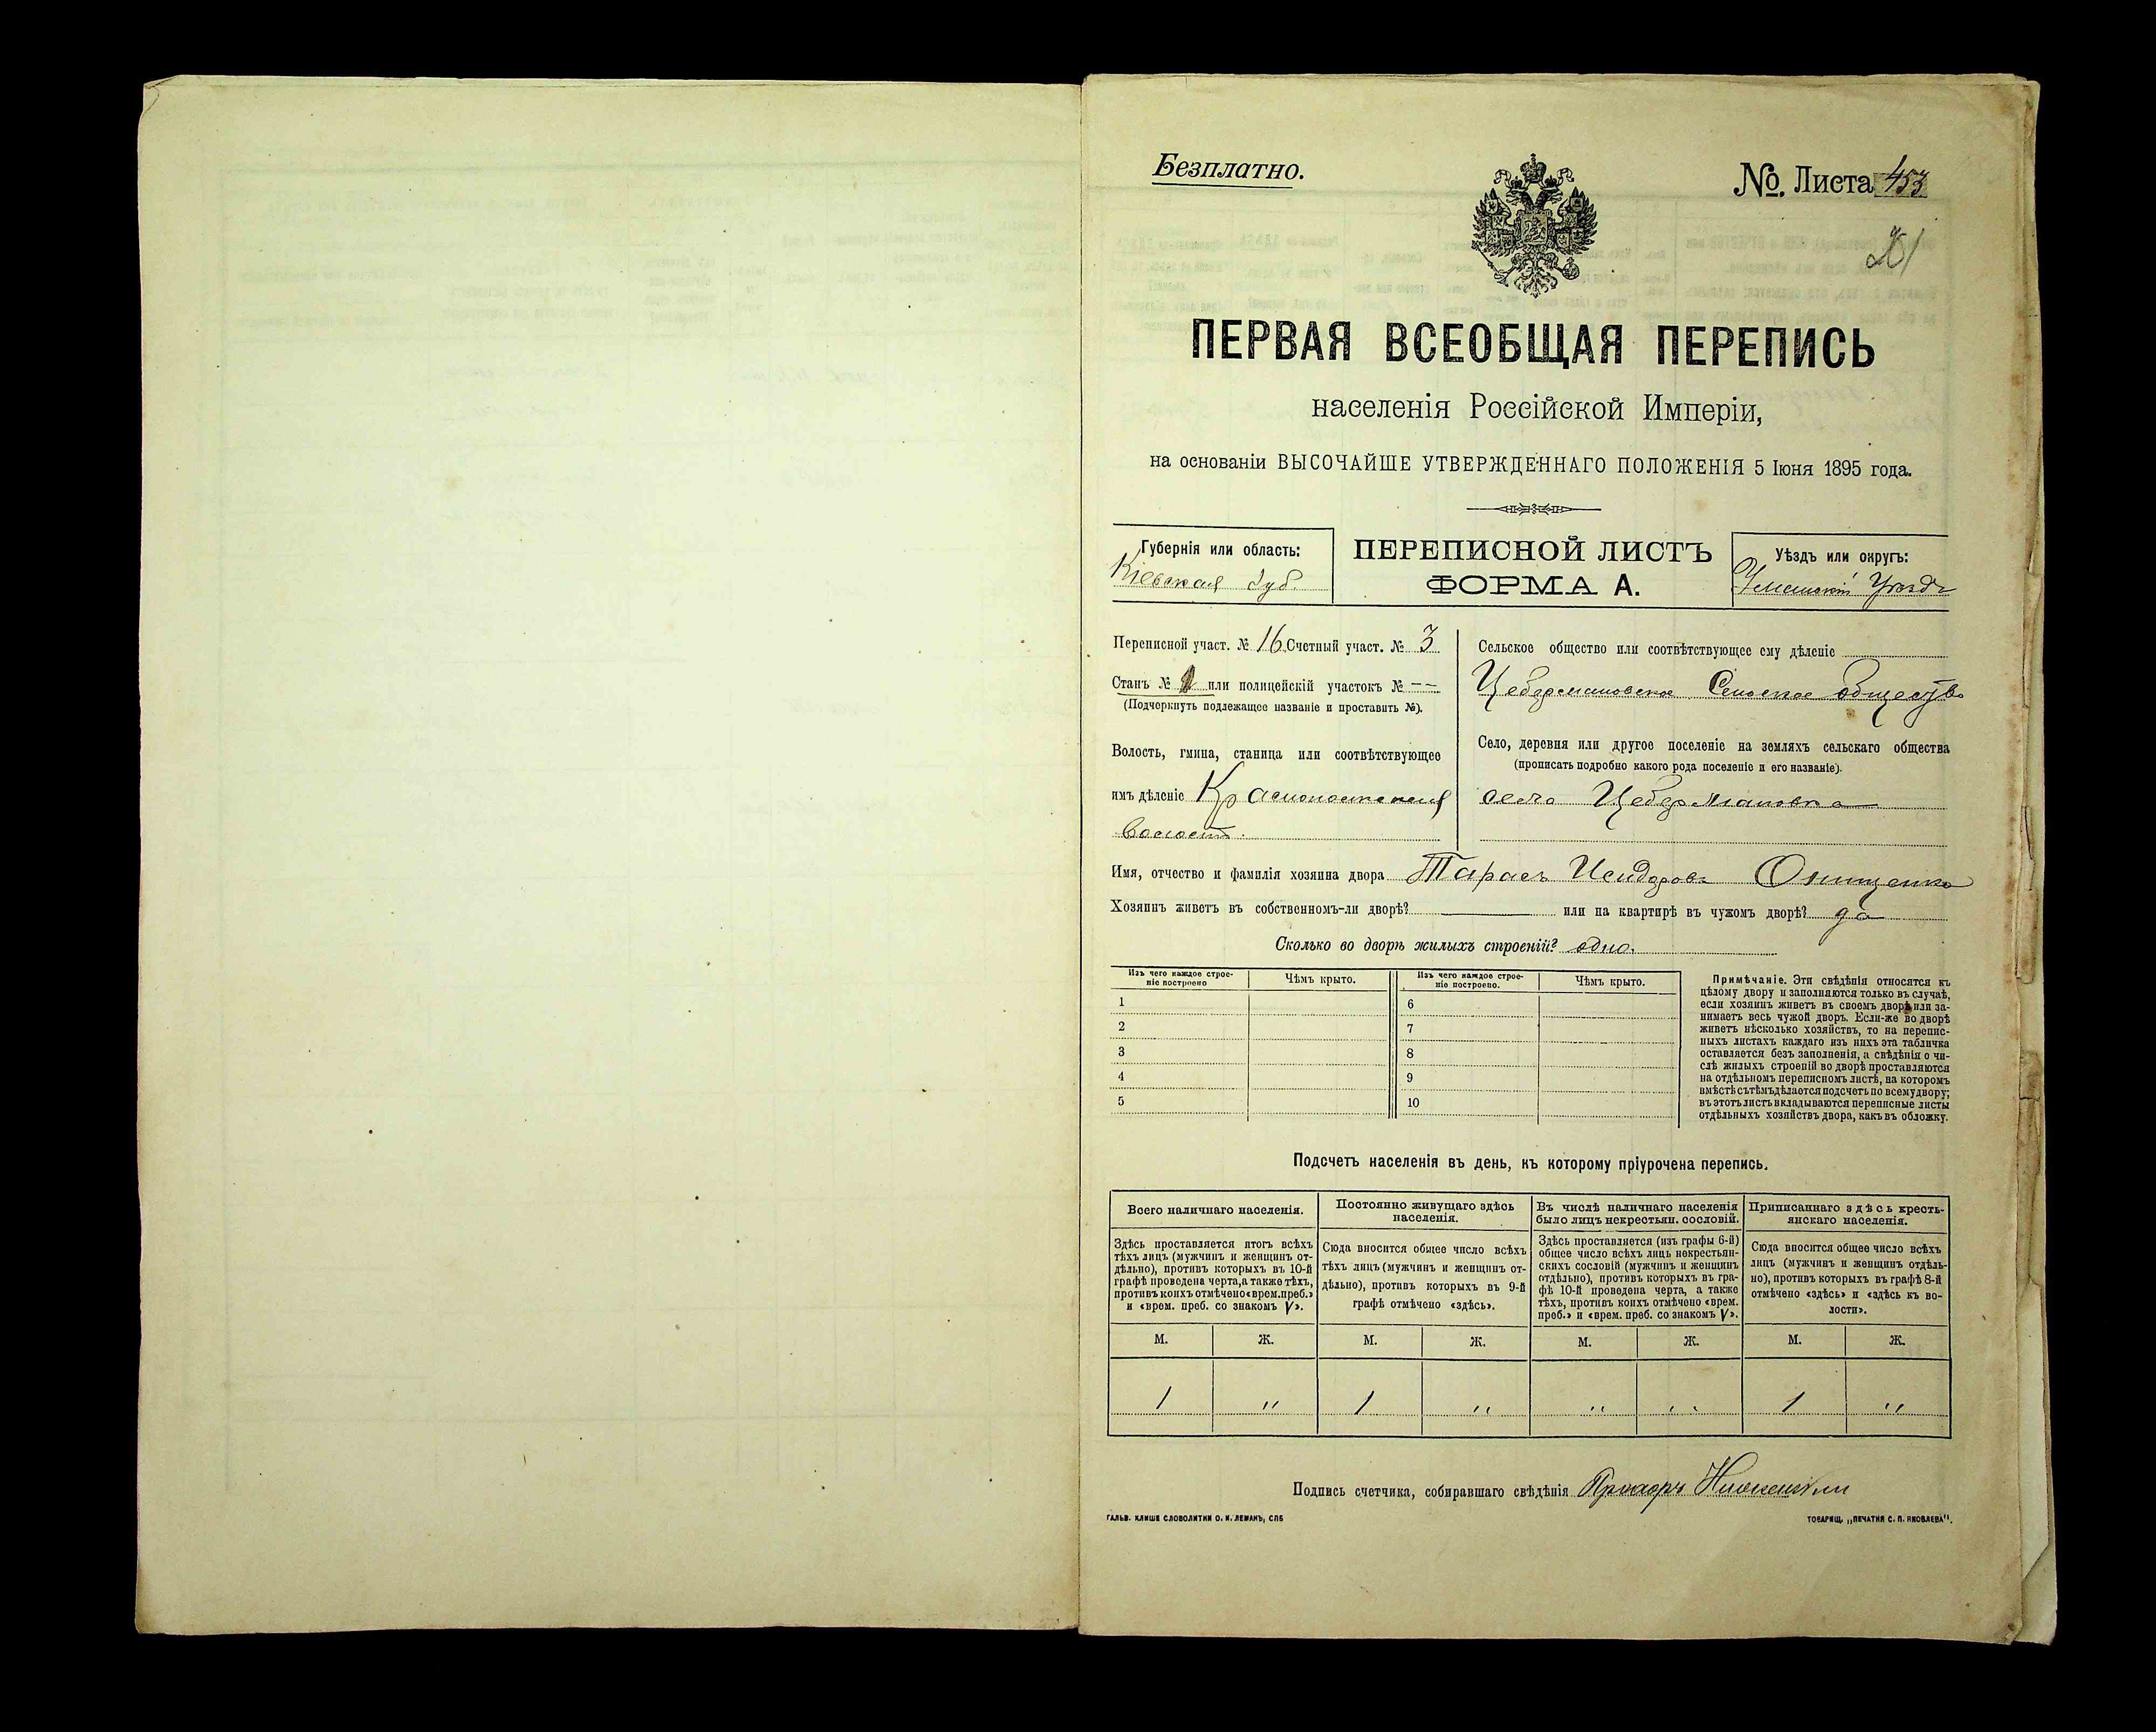 Безплатно.
№. Листа 453
ПЕРВАЯ ВСЕОБЩАЯ ПЕРЕПИСЬ
населенія Россійской Имперіи,
на основаніи ВЫСОЧАЙШЕ УТВЕРЖДЕННАГО ПОЛОЖЕНІЯ 5 Іюня 1895 года.
Губернія или область:
Кіевская губ.
ПЕРЕПИСНОЙ ЛИСТЪ
ФОРМА А.
Уѣздъ или округъ:
Уманскій Уѣздъ
Переписной участ. № 16 Счетный участ. № 3
Станъ № 2 или полицейскій участокъ № --
(Подчеркнуть подлежащее названіе и проставить №).
Волость, гмина, станица или соотвѣтствующее
имъ дѣленіе Краснопольская
волость.
Сельское общество или соотвѣтствующее ему дѣленіе
Цебермановское Сельское общество
Село, деревня или другое поселеніе на земляхъ сельскаго общества
(прописать подробно какого рода поселеніе и его названіе).
село Цебермановка
Имя, отчество и фамилія хозяина двора Тарасъ Исидоровъ Онищенко
Хозяинъ живетъ въ собственномъ-ли дворѣ? — или на квартирѣ въ чужомъ дворѣ? да
Сколько во дворѣ жилыхъ строеній? одно.
Изъ чего каждое строе-
ніе построено
Чѣмъ крыто.
Изъ чего каждое строе-
ніе построено.
Чѣмъ крыто.
1
2
3
4
5
6
7
8
9
10
Примѣчаніе. Эти свѣдѣнія относятся къ
цѣлому двору и заполняются только въ случаѣ,
если хозяинъ живетъ въ своемъ дворѣ или за-
нимаетъ весь чужой дворъ. Если-же во дворѣ
живетъ нѣсколько хозяйствъ, то на перепис-
ныхъ листахъ каждаго изъ нихъ эта табличка
оставляется безъ заполненія, а свѣдѣнія о чи-
слѣ жилыхъ строеній во дворѣ проставляются
на отдѣльномъ переписномъ листѣ, на которомъ
вмѣстѣ съ тѣмъ дѣлается подсчетъ по всему двору;
въ этотъ листъ вкладываются переписные листы
отдѣльныхъ хозяйствъ двора, какъ въ обложку.
Подсчетъ населенія въ день, къ которому пріурочена перепись.
Всего наличнаго населенія.
Здѣсь проставляется итогъ всѣхъ
тѣхъ лицъ (мужчинъ и женщинъ от-
дѣльно), противъ которыхъ въ 10-й
графѣ проведена черта, а также тѣхъ,
противъ коихъ отмѣчено «врем. преб.»
и «врем. преб. со знакомъ V».
Постоянно живущаго здѣсь
населенія.
Сюда вносится общее число всѣхъ
тѣхъ лицъ (мужчинъ и женщинъ от-
дѣльно), противъ которыхъ въ 9-й
графѣ отмѣчено «здѣсь».
Въ числѣ наличнаго населенія
было лицъ некрестьян. сословій.
Здѣсь проставляется (изъ графы 6-й)
общее число всѣхъ лицъ некрестьян-
скихъ сословій (мужчинъ и женщинъ
отдѣльно), противъ которыхъ въ гра-
фѣ 10-й проведена черта, а также
тѣхъ, противъ коихъ отмѣчено «врем.
преб.» и «врем. преб. со знакомъ V».
Приписаннаго здѣсь кресть-
янскаго населенія.
Сюда вносится общее число всѣхъ
лицъ (мужчинъ и женщинъ отдѣль-
но), противъ которыхъ въ графѣ 8-й
отмѣчено «здѣсь» и «здѣсь къ во-
лости».
М. Ж. М. Ж. М. Ж. М. Ж.
1 " 1 " " " 1 "
Подпись счетчика, собиравшаго свѣдѣнія
ГАЛЬВ. КЛИШЕ СЛОВОЛИТНИ О. И. ЛЕМАНЪ, СПБ
ТОВАРИЩ. „ПЕЧАТНЯ С. П. ЯКОВЛЕВА".